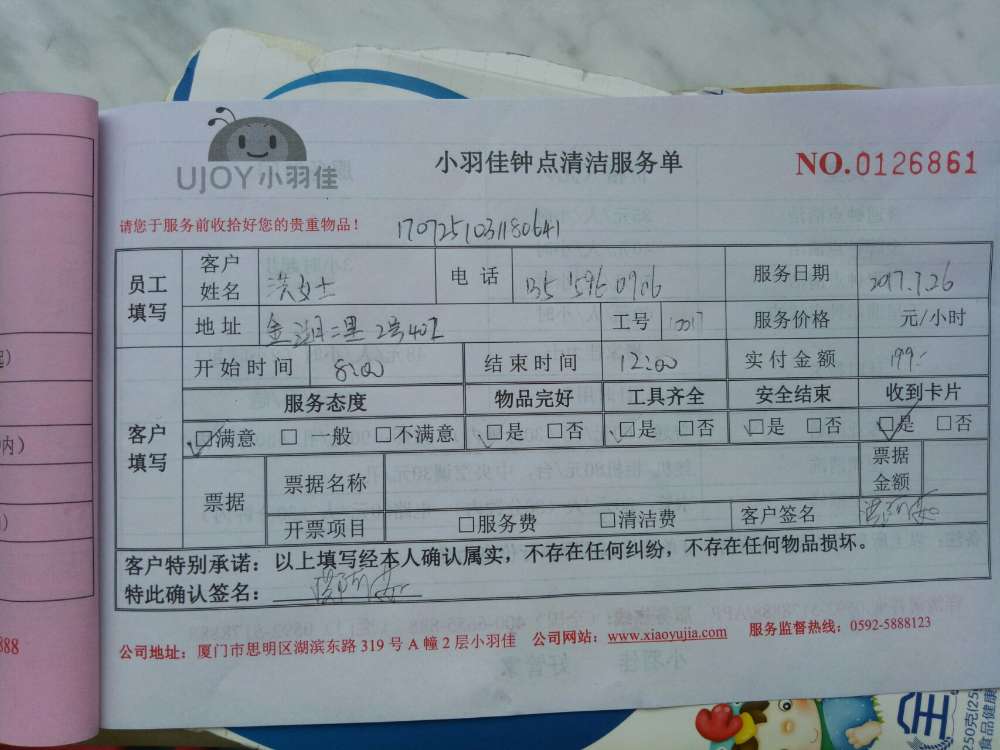 UJOY小羽佳
小羽佳钟点清洁服务单
NO.0126861
请您于服务前收拾好您的贵重物品！
170725103180641
员工填写 客户姓名 洪女士 电话 服务日期 2017.7.26
地址 金湖二里2号402 工号 服务价格 元/小时
客户填写 开始时间 8:00 结束时间 12:00 实付金额 199.-
服务态度 物品完好 工具齐全 安全结束 收到卡片
☑满意 □一般 □不满意 ☑是 □否 ☑是 □否 ☑是 □否 ☑是 □否
票据 票据名称 票据金额
开票项目 □服务费 □清洁费 客户签名
客户特别承诺：以上填写经本人确认属实，不存在任何纠纷，不存在任何物品损坏。
特此确认签名：
公司地址：厦门市思明区湖滨东路 319 号 A 幢 2 层小羽佳 公司网站：www.xiaoyujia.com 服务监督热线：0592-5888123
888
内）